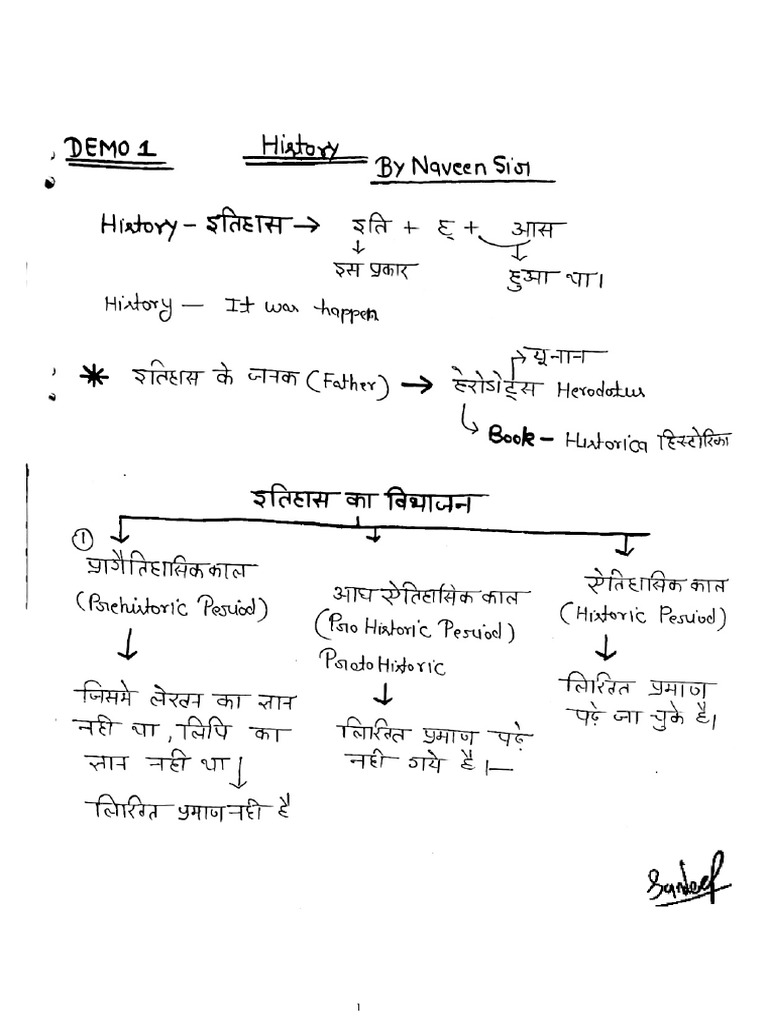 DEMO 1 History By Naveen Sir
History – इतिहास → इति + ह् + आस
इस प्रकार हुआ था।
History — It was happen
* इतिहास के जनक (Father) → हेरोडोट्स Herodotus
यूनान
Book – Historica हिस्टोरिका
इतिहास का विभाजन
①
प्रागैतिहासिक काल
(Prehistoric Period)
जिसमे लेखन का ज्ञान
नही था, लिपि का
ज्ञान नही था
लिखित प्रमाण नही है
आघ ऐतिहासिक काल
(Pro Historic Period)
Proto Historic
लिखित प्रमाण पढ़े
नही गये है।—
ऐतिहासिक काल
(Historic Period)
लिखित प्रमाण
पढ़े जा चुके है।
Sandeep
1